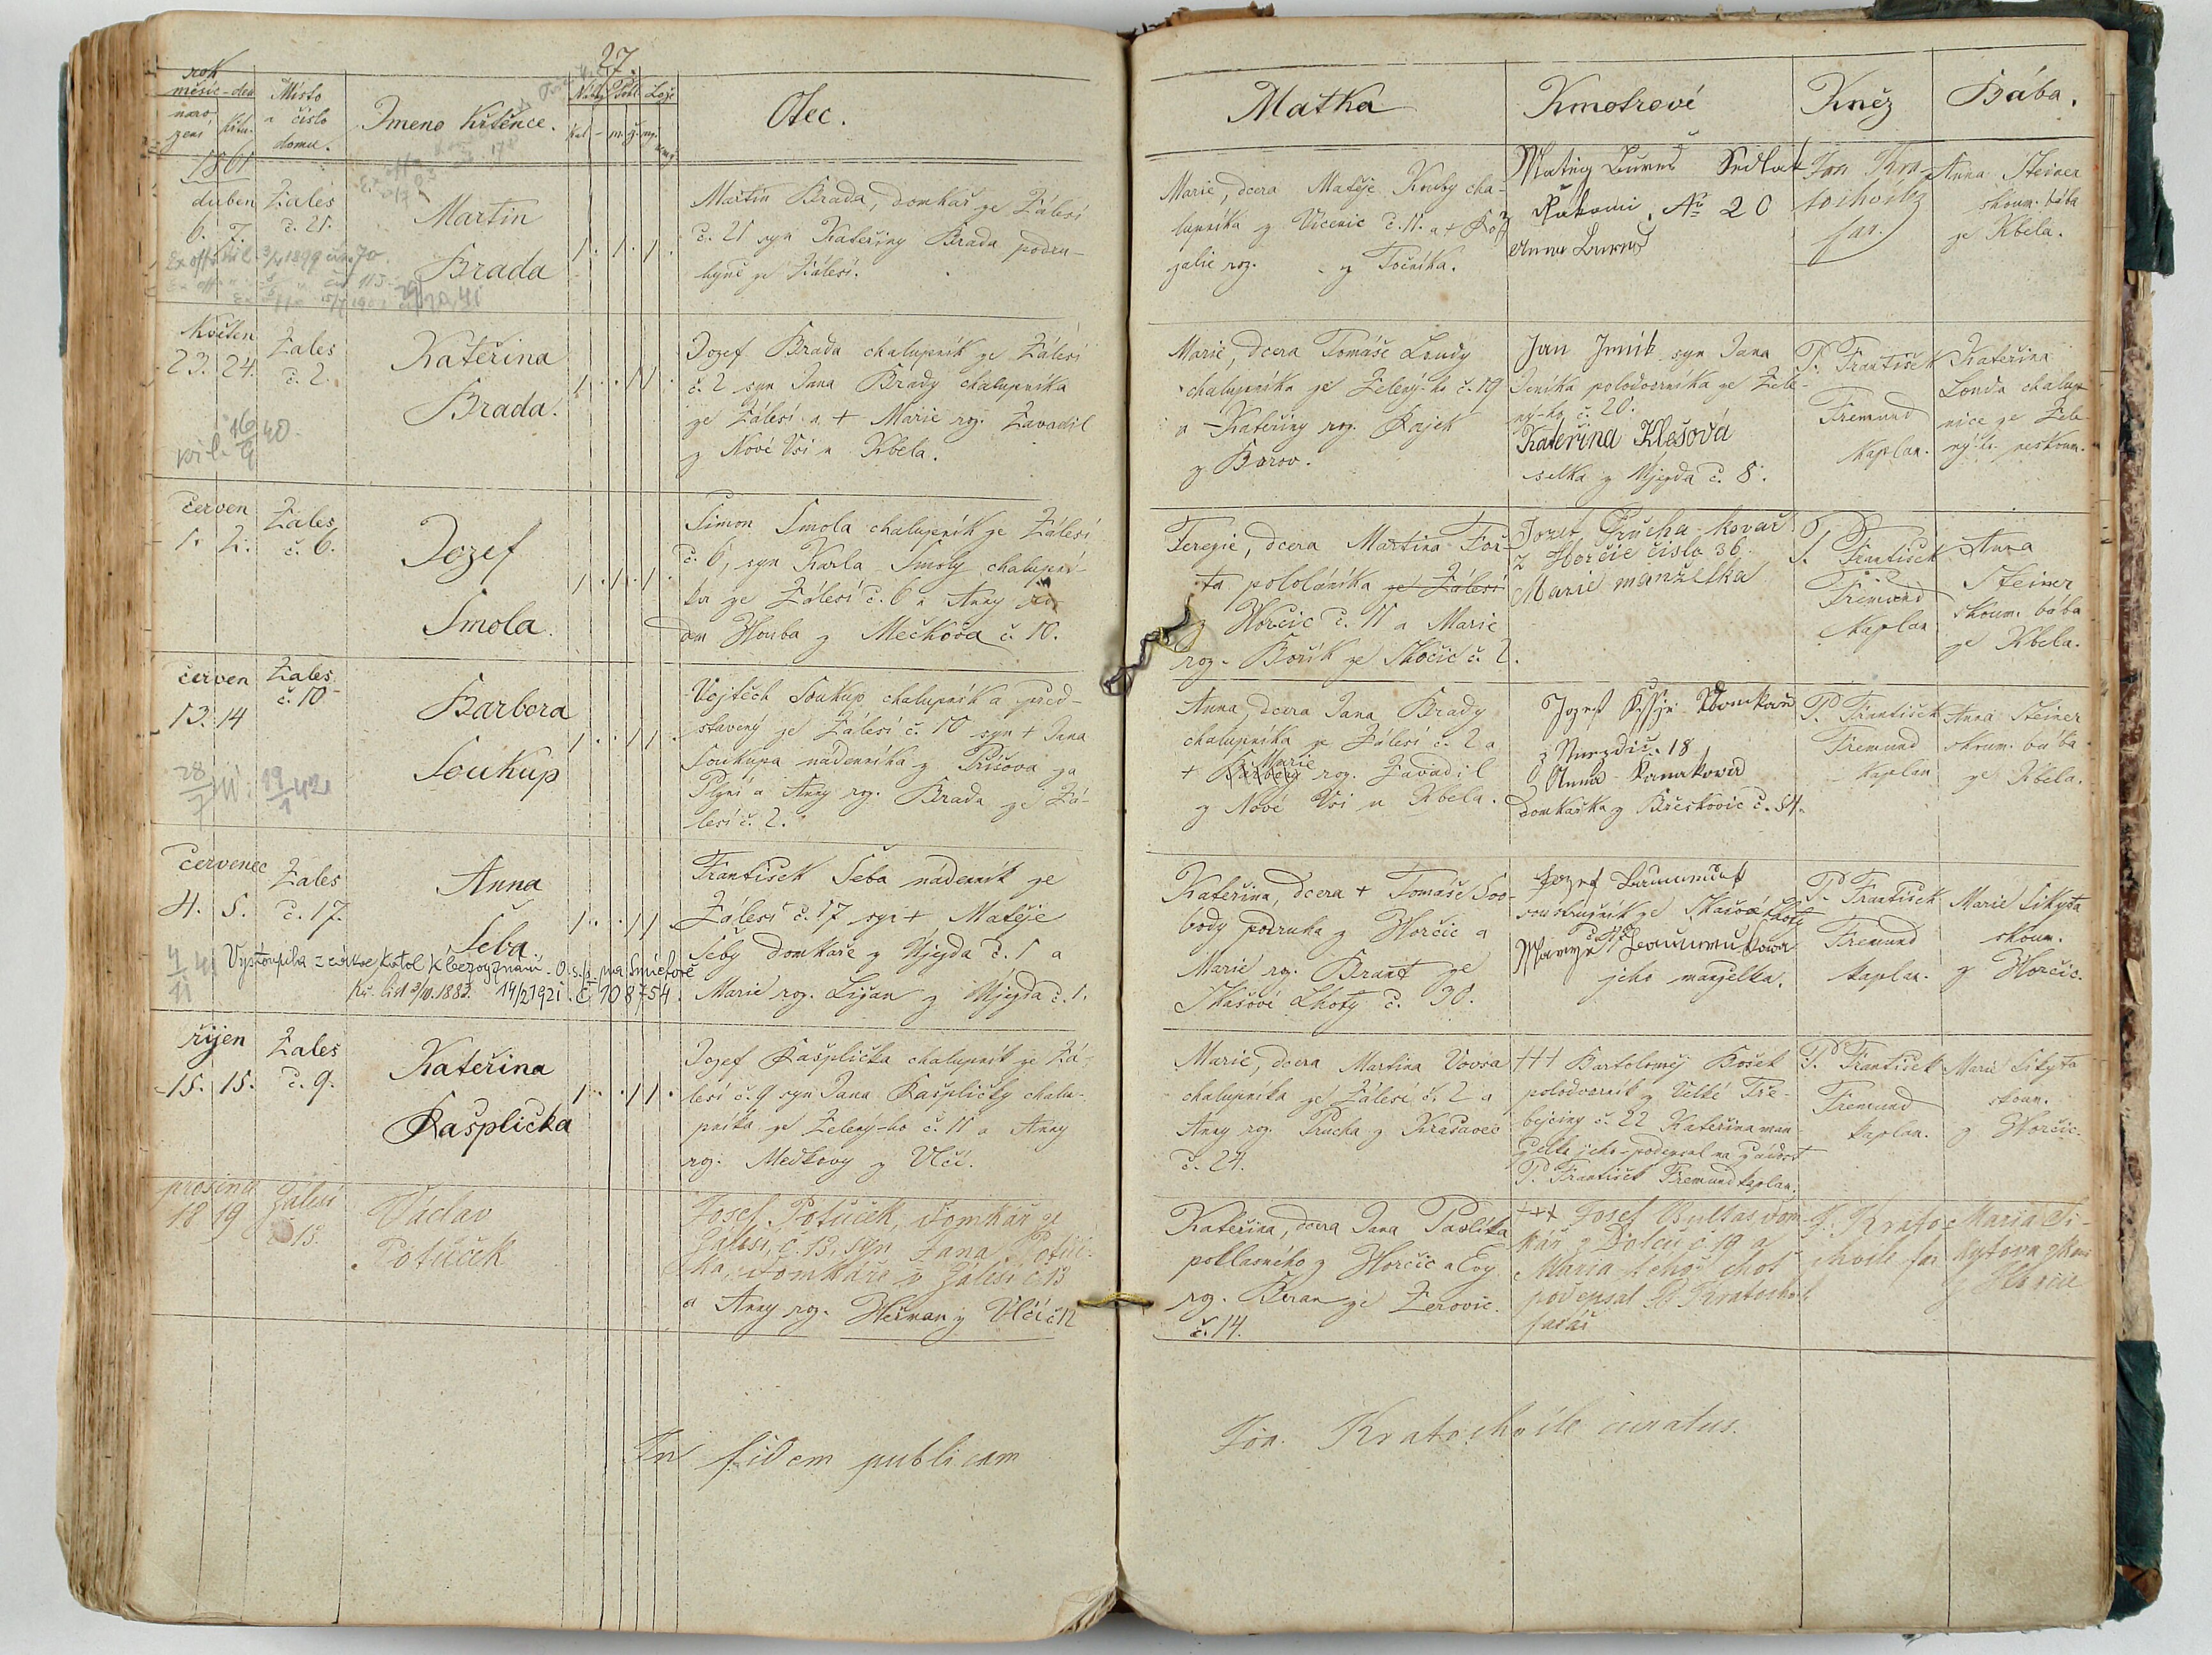 27.
rok
měsíc - den
naro-
zení
křtu.
Místo
a číslo
domu.
Jmeno Křtěnce.
Náb.
Pohl.
Lože
Otec.
Matka
Kmotrové
Kněz
Bába.
1861
duben
6. 7.
Záleś
č. 21.
Martin
Brada
Martin Brada, domkář ze Zálesí
č. 21 syn Kateřiny Brada podru-
hyně ze Zálesí.
Marie, dcera Matěje Kuby cha-
lupníka z Vícenic č. 11. a + Ro-
zalie roz. z Točníka.
Matěj Bureš Sedlak
z Rákomi, No 20
Anna Bureš
Jan Kra-
tochvíle
far.
Anna Steiner
zkoum. bába
ze Kbela.
Květen
23. 24.
Záles
č. 2.
Kateřina
Brada.
Jozef Brada chalupník ze Zálesí
č. 2 syn Jana Brady chalupníka
ze Zálesí a + Marie roz. Zavadil
z Nové Vsi u Kbela.
Marie, dcera Tomáše Loudy
chalupníka ze Zelený-ho č. 19
a Kateřiny roz. Hajek
z Borov.
Jan Jeník syn Jana
Jeníka polodvorníka ze Zele-
ný-ho č. 20.
Kateřina Klešová
selka z Újezda č. 8.
P. František
Fremund
Kaplan.
Kateřina
Louda chalup-
nice ze Zele-
ný-h. neskoum.
16/9 40.
červen
1. 2.
Záles
č. 6.
Jozef
Smola.
Šimon Smola chalupník ze Zálesí
č. 6, syn Karla Smoly chalupní-
ka ze Zálesí č. 6 a Anny ro-
dem Houba z Mečkova č. 10.
Terezie, dcera Martina Fouř-
ta pololáníka ze Zálesí
z Horčic č. 11 a Marie
roz. Bořík ze Skočic č. 2.
Jozef Průcha kovař
z Horčic čislo 36.
Marie manželka
P. František
Fremund
Kaplan
Anna
Steiner
zkoum. bába
ze Kbela.
červen
13. 14
Záles
č. 10
Barbora
Soukup
Vojtěch Soukup, chalupník a před-
stavený ze Zálesí č. 10 syn + Jana
Soukupa nádenníka z Příšova za
Plzní a Anny roz. Brada ze Zá-
lesí č. 2.
Anna, dcera Jana Brady
chalupníka ze Zálesí č. 2 a
Marie
+ Barbory roz. Zavadil
z Nové Vsi u Kbela.
č. 18
Anna
domkařka z Břeskovic č. 54.
P. František
Fremund
Kaplan
Anna Steiner
zkoum. bába
ze Kbela.
28/7
19/1 42
červenec
4. 5.
Záles
č. 17.
Anna
Šeba
František Šeba nádenník ze
Zálesí č. 17 syn + Matěje
Šeby domkaře z Újezda č. 1 a
Marie roz. Lišan z Újezda č. 1.
Vystoupila z církve katol. k bezvyznání. O. s. p. na Smíchově
14/2 1921. Č. 108754.
Kř. list 1883.
Kateřina, dcera + Tomáše Svo-
body podruha z Horčic a
Marie roz. Brant ze
Skašové Lhoty č. 30.
Jozef
soustružník ze Skašové Lhoty
jeho manželka.
P. František
Fremund
kaplan.
Marie Sikyta
zkoum.
z Horčic.
řijen
15. 15.
Záles
č. 9.
Kateřina
Kašplička
Jozef Kašplička chalupník ze Zá-
lesí č. 9 syn Jana Kašpličky chalu-
pníka ze Zelený-ho č. 11 a Anny
roz. Medkovy z Vlčí.
Marie, dcera Martina Vovsa
chalupníka ze Zálesí č. 2 a
Anny roz. Prucha z Krasavec
č. 24.
+++ Bartoloměj Bošek
polodvorník z Velké Tře-
bejciny č. 22 Kateřina man-
želka jeho - podepsal na žádost
P. František Fremund kaplan.
P. František
Fremund
kaplan.
Marie Sikyta
zkoum.
z Horčic.
prosinec
18 19
Zálesí
č 13.
Václav
Potůček
Josef Potůček, domkář ze
Zálesí, č. 13, syn Jana Potůč-
ka, domkáře v Zálesí č 13
a Anny roz. Heřman z Vlčí č 12
Kateřina, dcera Jana Pavlíka
poklasného z Horčic a Evy
roz. Beran ze Žerovic.
č. 14.
+++ Josef Bultas dom-
kář z Dolců č 19 a
Maria, jehož choť
podepsal Kratochvíle
farář
J. Krato-
chvíle far
Maria Si-
kytova zkou
z Horčic
In fidem publicam
Joa. Kratochvíle curatus.